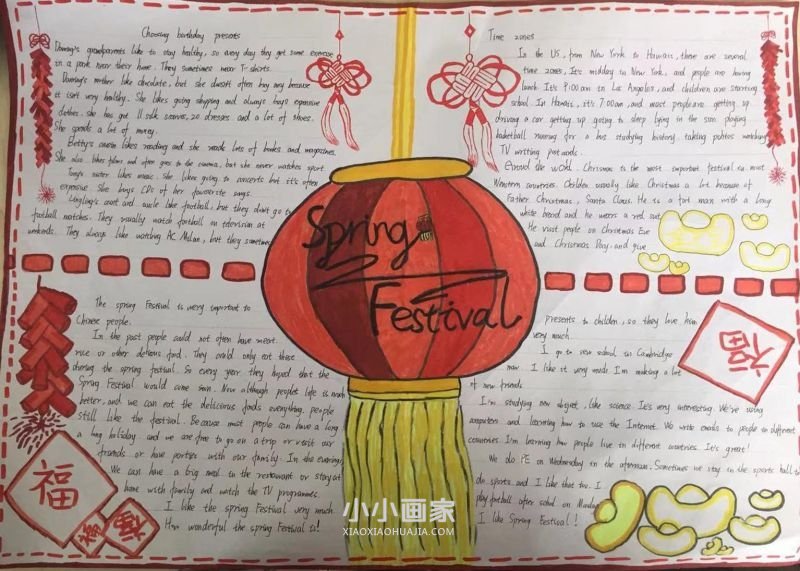 Choosing birthday presents
Daming's grandparents like to stay healthy, so every day they get some exercise
in a park near their home. They sometimes wear T-shirts.
Daming's mother like chocolate, but she doesn't often buy any because
it isn't very healthy. She likes going shopping and always buys expensive
clothes. She has got 11 silk scarves, 20 dresses and a lot of shoes.
She spends a lot of money.
Betty's cousin likes reading and she reads lots of books and magazines.
She also likes films and often goes to the cinema, but she never watches sport.
Tony's sister likes music. She likes going to concerts but it's often
expensive. She buys CDs of her favourite songs.
Lingling's aunt and uncle like football, but they don't go to
football matches. They usually watch football on television at
weekends. They always like watching AC Milan, but they sometimes
Time zones
In the US, from New York to Hawaii, there are several
time zones, It's midday in New York, and people are having
lunch. It's 9:00 am in Los Angeles, and children are starting
school. In Hawaii, it's 7:00 am, and most people are getting up,
driving a car getting up going to sleep lying in the sun playing
basketball running for a bus studying history, taking photos watching
TV writing postcards.
Around the world. Christmas is the most important festival in most
Western countries. Children usually like Christmas a lot because of
Father Christmas, Santa Claus. He is a fat man with a long
white beard and he wears a red suit
He visit people on Christmas Eve
and Christmas Day and give
Spring
Festival
The spring Festival is very important to
Chinese people.
In the past people could not often have meat.
rice or other delicious food. They could only eat these
during the spring festival. So every year they hoped that the
Spring Festival would come soon. Now although people's life is much
better, and we can eat the delicious foods everything, people
still like the festival. Because most people can have a long
a long holiday, and we are free to go on a trip or visit our
friends or have parties with our family. In the evenings
We can have a big meal in the restaurant or stay at
home with family and watch the TV programmes.
I like the spring Festival very much
How wonderful the spring Festival is!
presents to children, so they love him
very much.
I go to new school in Cambridge
now. I like it very much I'm making a lot
of new friends.
I'm studying new subject, like science. It's very interesting. We're using
computers and learning how to use the Internet. We write emails to people in different
countries. I'm learning how people live in different countries. It's great!
We do PE on Wednesday in the afternoon. Sometimes we stay in the sports hall to
do sports, and I like that too. I
play football after school on Monday
I like Spring Festival!
福
福
福
福
小小画家
XIAOXIAOHUAJIA.COM